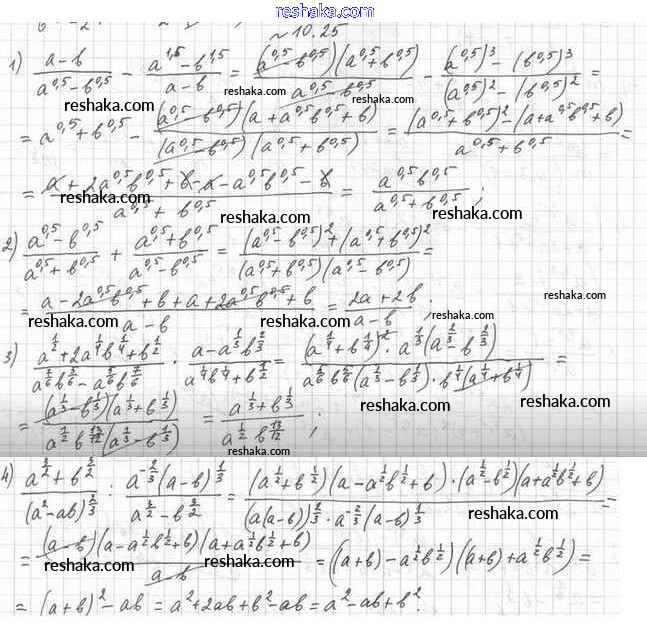 reshaka.ru
~10.25
1) (a-b)/(a^0,5-b^0,5) - (a^1,5-b^1,5)/(a-b) = (a^0,5-b^0,5)(a^0,5+b^0,5)/(a^0,5-b^0,5) - ((a^0,5)^3-(b^0,5)^3)/((a^0,5)^2-(b^0,5)^2) =
reshaka.ru reshaka.ru reshaka.ru
= a^0,5+b^0,5 - (a^0,5-b^0,5)(a+a^0,5b^0,5+b)/((a^0,5-b^0,5)(a^0,5+b^0,5)) = ((a^0,5+b^0,5)^2-(a+a^0,5b^0,5+b))/(a^0,5+b^0,5) =
= (a+2a^0,5b^0,5+b-a-a^0,5b^0,5-b)/(a^0,5+b^0,5) = a^0,5b^0,5/(a^0,5+b^0,5);
reshaka.ru reshaka.ru reshaka.ru
2) (a^0,5-b^0,5)/(a^0,5+b^0,5) + (a^0,5+b^0,5)/(a^0,5-b^0,5) = ((a^0,5-b^0,5)^2+(a^0,5+b^0,5)^2)/((a^0,5+b^0,5)(a^0,5-b^0,5)) =
= (a-2a^0,5b^0,5+b+a+2a^0,5b^0,5+b)/(a-b) = (2a+2b)/(a-b);
reshaka.ru reshaka.ru reshaka.ru reshaka.ru
3) (a^1/2+2a^1/4b^1/4+b^1/2)/(a^7/6b^5/6-a^5/6b^7/6) · (a-a^1/3b^2/3)/(a^1/4b^1/4+b^1/2) = =
= (a^1/3-b^1/3)(a^1/3+b^1/3)/(a^1/2b^13/12(a^1/3-b^1/3)) = (a^1/3+b^1/3)/(a^1/2b^13/12);
reshaka.ru reshaka.ru reshaka.ru reshaka.ru
4) (a^3/2+b^3/2)/(a^2-ab)^2/3 : a^-2/3(a-b)^1/3/(a^3/2-b^3/2) = (a^1/2+b^1/2)(a-a^1/2b^1/2+b)·(a^1/2-b^1/2)(a+a^1/2b^1/2+b)/((a(a-b))^2/3·a^-2/3(a-b)^1/3) =
reshaka.ru
= (a-b)(a-a^1/2b^1/2+b)(a+a^1/2b^1/2+b)/(a-b) = ((a+b)-a^1/2b^1/2)((a+b)+a^1/2b^1/2) =
reshaka.ru reshaka.ru
= (a+b)^2-ab = a^2+2ab+b^2-ab = a^2-ab+b^2.